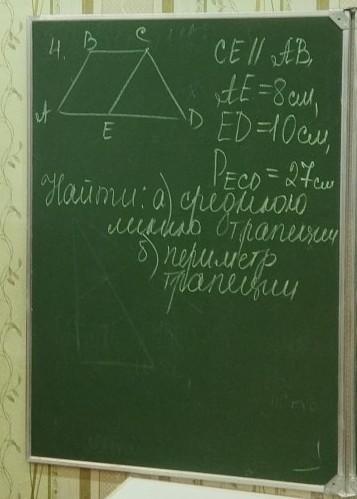 4.
B C
A E D
CE || AB,
AE = 8 см,
ED = 10 см,
P ECD = 27 см
Найти: а) среднюю
линию трапеции
б) периметр
трапеции